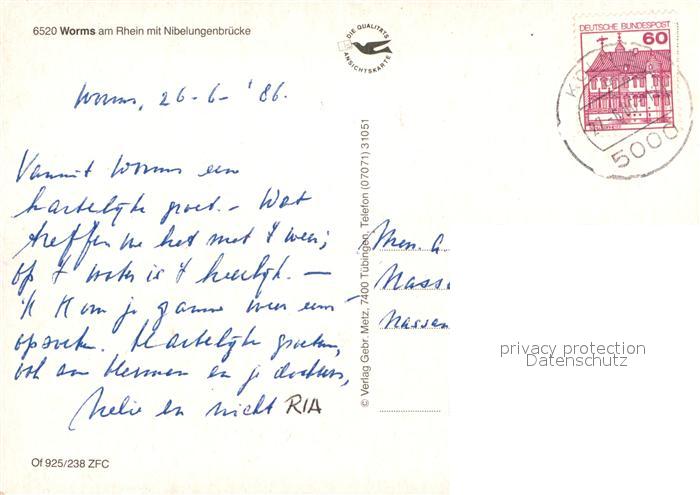 6520 Worms am Rhein mit Nibelungenbrücke
DIE QUALITÄTS
ANSICHTSKARTE
DEUTSCHE BUNDESPOST
60
5000
Worms, 26-6-'86.
Vanuit Worms een
hartelijke groet. - Wat
treffen we het met 't weer;
op 't water is 't heerlijk. -
'k Kom je gauw weer eens
opzoeken. Hartelijke groeten,
ook aan Herman en je dochters,
en nicht RIA
© Verlag Gebr. Metz, 7400 Tübingen, Telefon (07071) 31051
Mevr. G.
Nassa
Nassau
privacy protection
Datenschutz
Of 925/238 ZFC